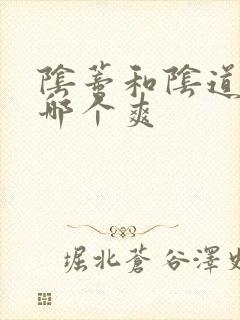 陰蒂和陰道
哪个爽
堀北蒼谷澤